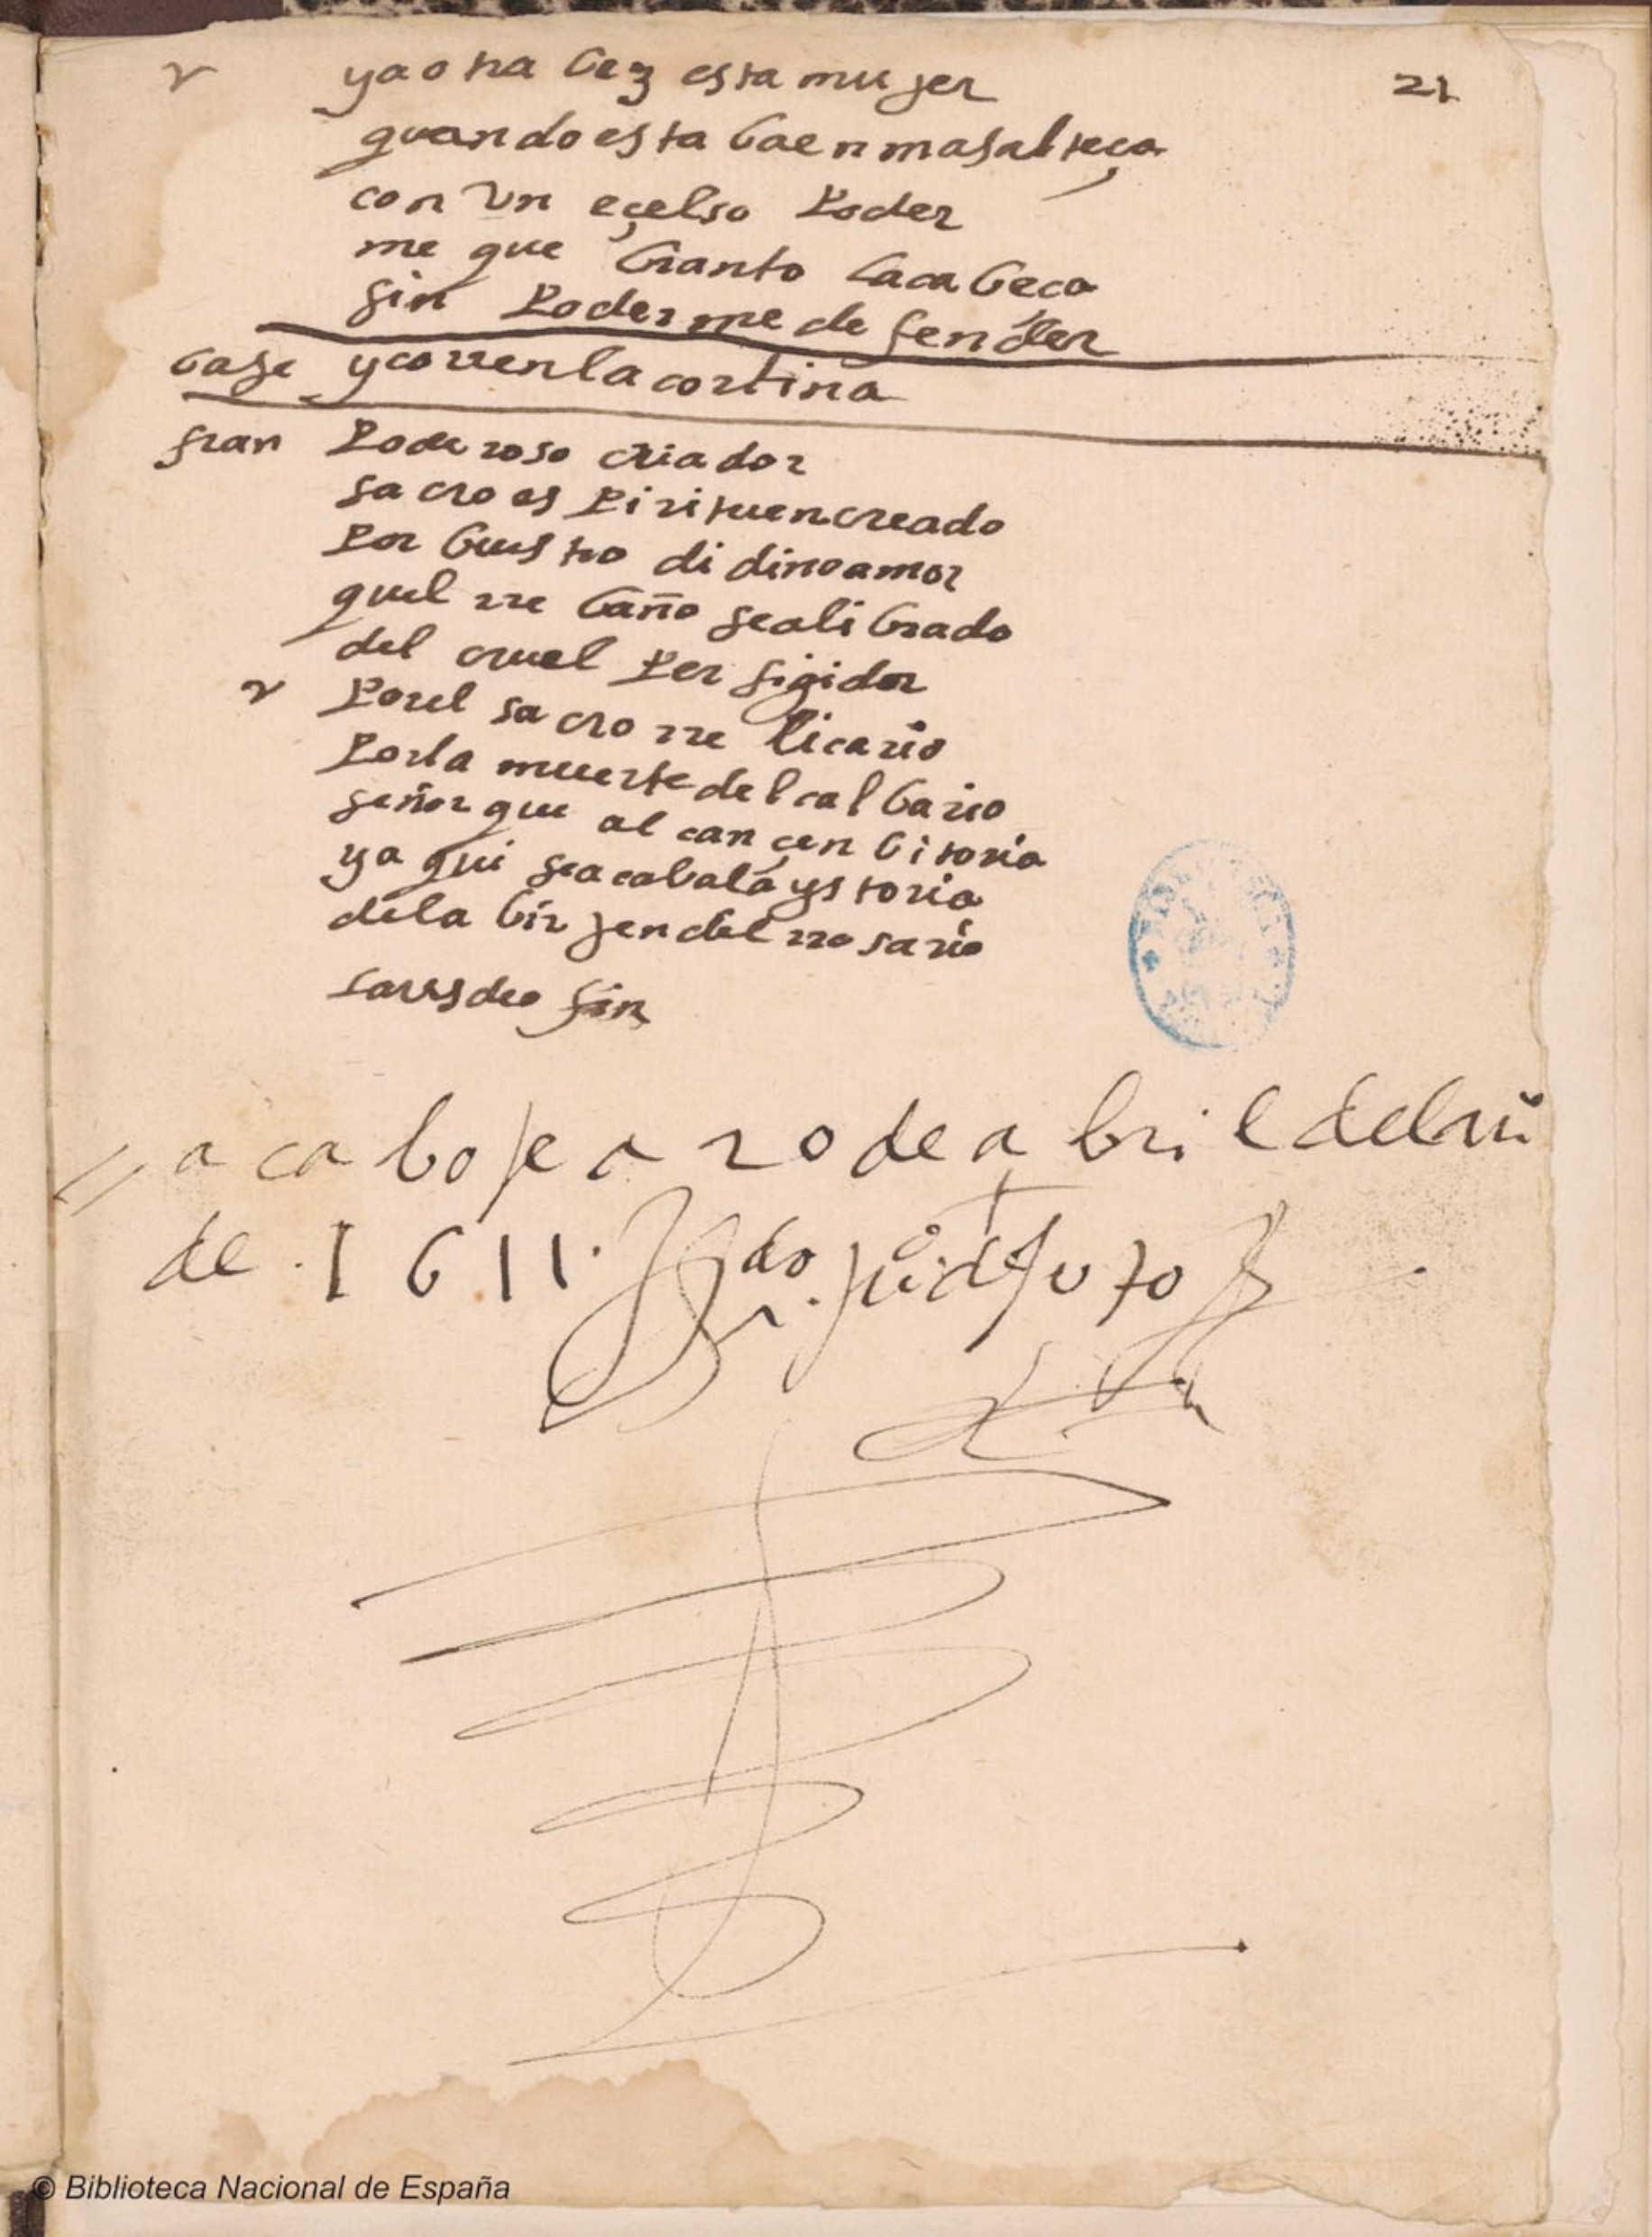 21
ya otra bez esta mujer
quando estaba en mas alteça
con un eçelso poder
me quebranto la cabeça
sin poderme defender
base y corren la cortina
fran poderoso criador
sacro espiritu encreado
por buestro didino amor
quel rrebaño sea librado
del cruel persigidor
por el sacro rrelicario
por la muerte del calbario
señor que alcançen bitoria
y aqui se acaba la ystoria
de la birjen del rrosario
laus deo fin
acabose a 20 de abril del añ
de .1611.
© Biblioteca Nacional de España